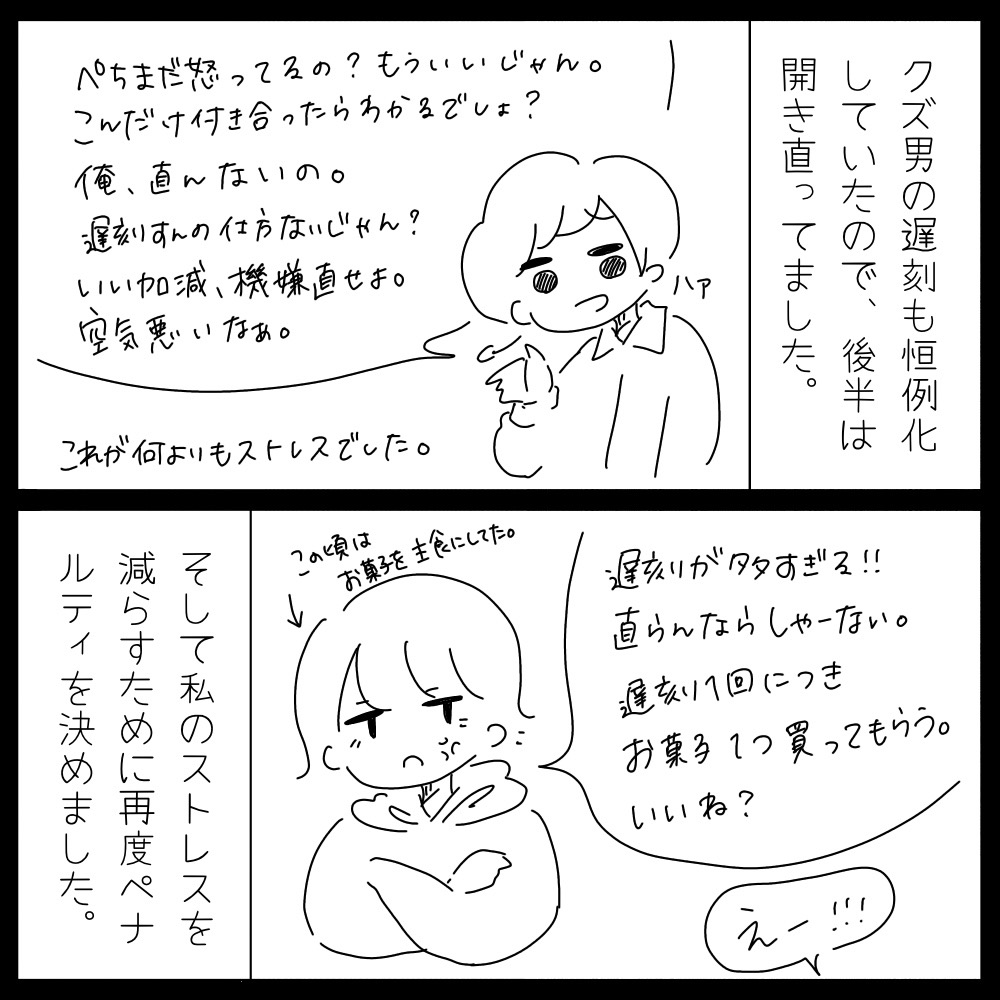 クズ男の遅刻も恒例化
していたので、後半は
開き直ってました。
ぺちまだ怒ってるの？もういいじゃん。
こんだけ付き合ったらわかるでしょ？
俺、直んないの。
遅刻すんの仕方ないじゃん？
いい加減、機嫌直せよ。
空気悪いなぁ。
ハァ
これが何よりもストレスでした。
遅刻が多すぎる!!
直らんならしゃーない。
遅刻1回につき
お菓子1つ買ってもらう。
いいね？
この頃は
お菓子を主食にしてた。
えー!!!
そして私のストレスを
減らすために再度ペナ
ルティを決めました。